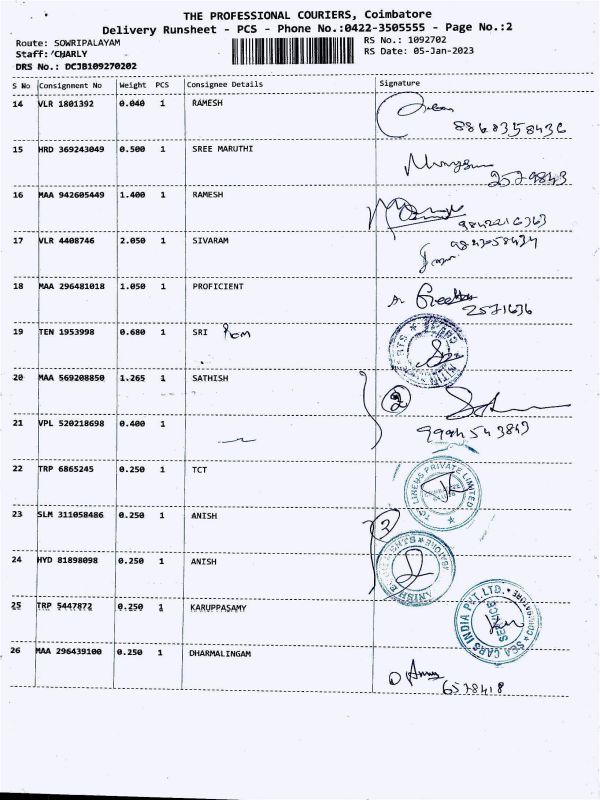 THE PROFESSIONAL COURIERS, Coimbatore
Delivery Runsheet - PCS - Phone No.:0422-3505555 - Page No.:2
Route: SOWRIPALAYAM
RS No.: 1092702
Staff: CHARLY
RS Date: 05-Jan-2023
DRS No.: DCJB109270202
S No Consignment No Weight PCS Consignee Details Signature
14 VLR 1801392 0.040 1 RAMESH
8868358436
15 HRD 369243049 0.500 1 SREE MARUTHI
2579843
16 MAA 942605449 1.400 1 RAMESH
9842216363
17 VLR 4408746 2.050 1 SIVARAM
18 MAA 296481018 1.050 1 PROFICIENT
2571636
19 TEN 1953998 0.680 1 SRI Ram
20 MAA 569208850 1.265 1 SATHISH
2
21 VPL 520218698 0.400 1
9994543843
22 TRP 6865245 0.250 1 TCT
LINENS PRIVATE LIMITED
23 SLM 311058486 0.250 1 ANISH
2
24 HYD 81898098 0.250 1 ANISH
25 TRP 5447872 0.250 1 KARUPPASAMY
SEA CARS INDIA PVT. LTD.
26 MAA 296439100 0.250 1 DHARMALINGAM
6578418